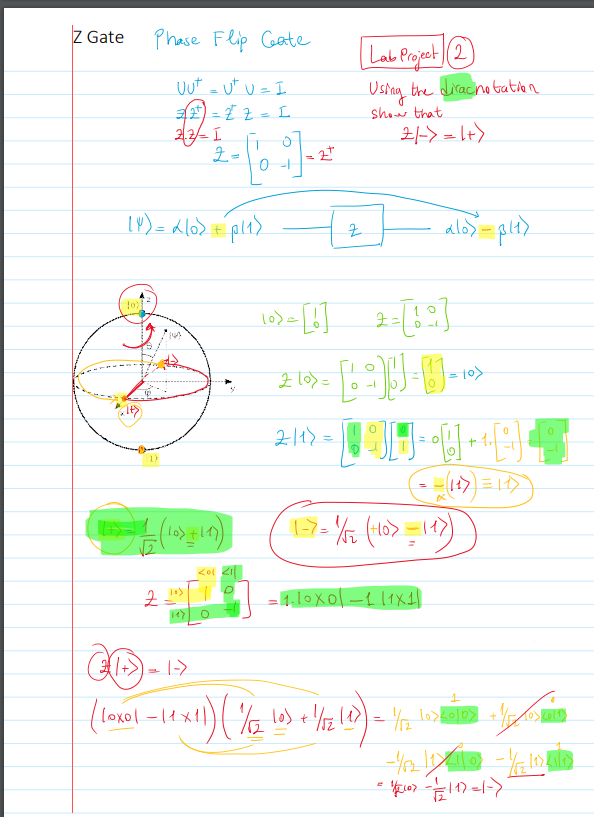 Z Gate Phase Flip Gate
Lab Project 2
Using the dirac notation
show that
Z|-> = |+>
UU† = U† U = I
ZZ† = Z† Z = I
Z.Z = I
Z = [1 0; 0 -1] = Z†
|Ψ> = α|0> + β|1> Z α|0> - β|1>
|0>
z
|Ψ>
θ
|->
y
φ
|+>
x
|1>
|0> = [1; 0] Z = [1 0; 0 -1]
Z|0> = [1 0; 0 -1][1; 0] = [1; 0] = |0>
Z|1> = [1 0; 0 -1][0; 1] = 0[1; 0] + 1.[0; -1] = [0; -1]
= -|1> ≡ |1>
|+> = 1/√2 (|0> + |1>)
|-> = 1/√2 (+|0> - |1>)
<0| <1|
Z = |0> |1> [1 0; 0 -1] = 1.|0><0| - 1 |1><1|
Z|+> = |->
(|0><0| - |1><1|) (1/√2 |0> + 1/√2 |1>) = 1/√2 |0><0|0> + 1/√2 |0><0|1>
-1/√2 |1><1|0> - 1/√2 |1><1|1>
= 1/√2 |0> - 1/√2 |1> = |->